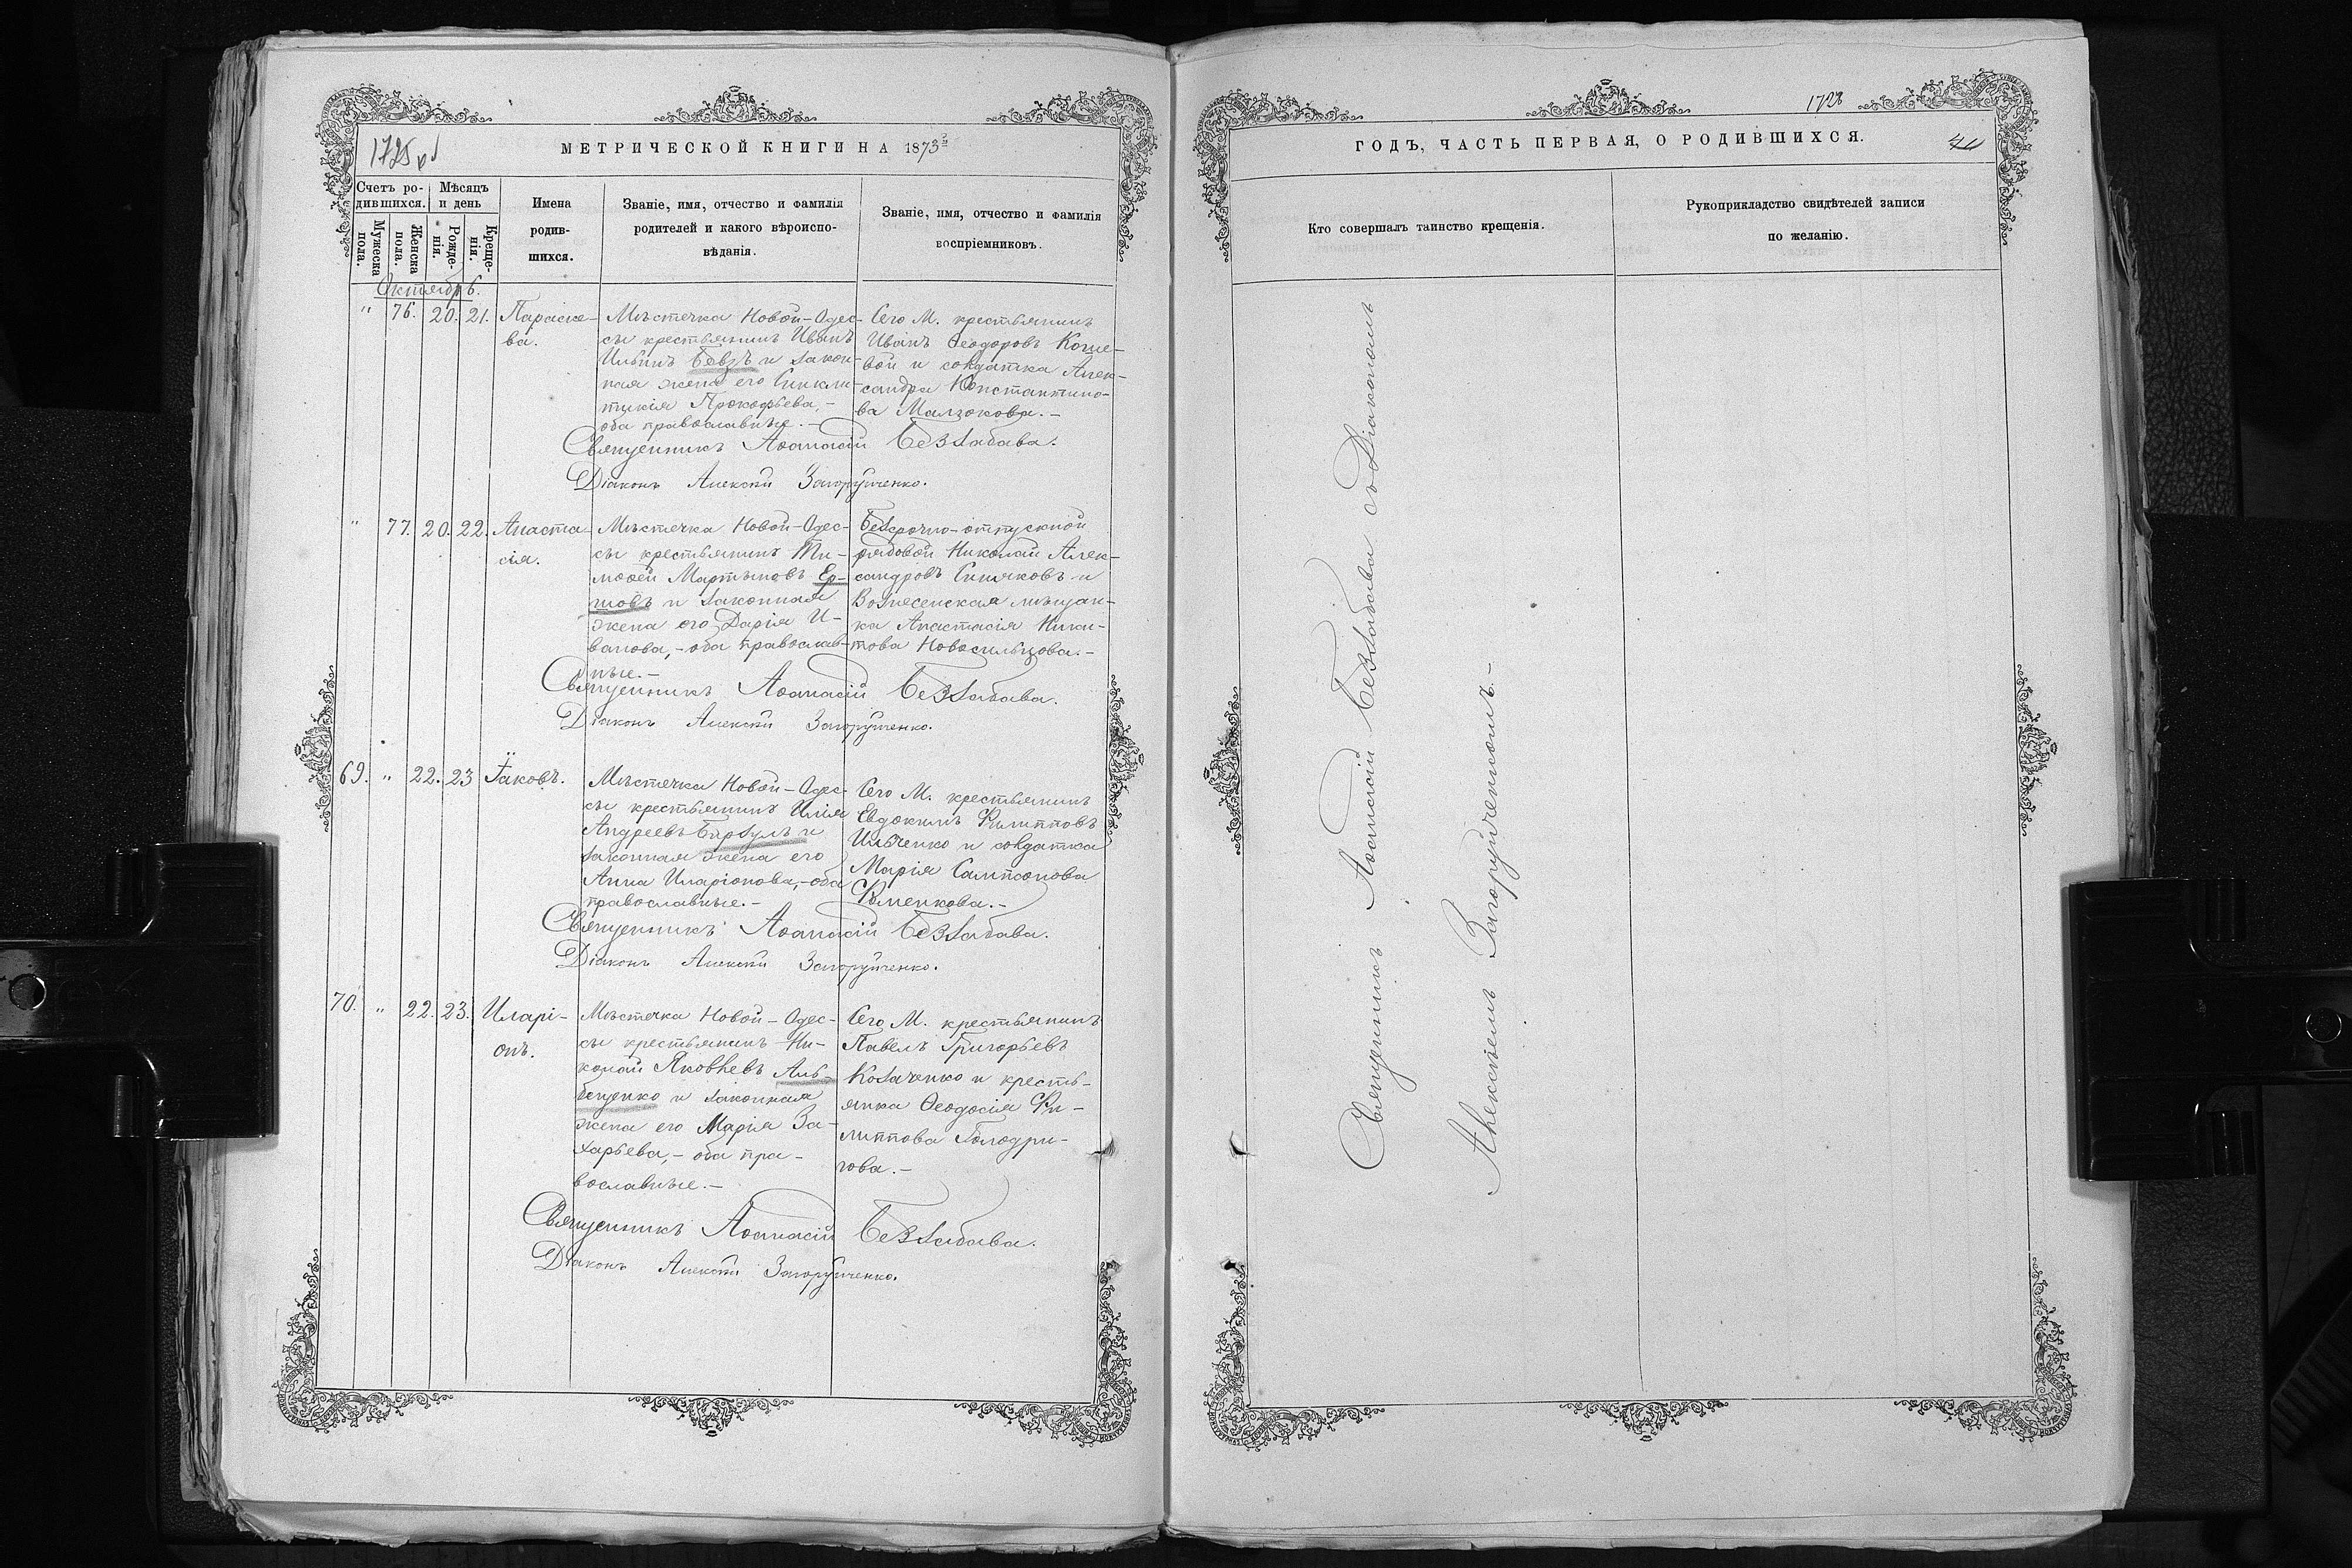 1725 об
МЕТРИЧЕСКОЙ КНИГИ НА 1873й
Счетъ ро-
дившихся.
Мѣсяцъ
и день
Мужеска
пола.
Женска
пола.
Рожде-
нія.
Креще-
нія.
Имена
родив-
шихся.
Званіе, имя, отчество и фамилія
родителей и какого вѣроиспо-
вѣданія.
Званіе, имя, отчество и фамилія
воспріемниковъ.
Октябрь.
" 76. 20. 21.
Параске-
ва.
Мѣстечка Новой-Одес-
сы крестьянинъ Иванъ
Ильинъ Бевзъ и закон-
ная жена его Синкли-
тикія Прокофьева, -
оба православные. -
Сего М. крестьянинъ
Иванъ Ѳеодоровъ Коше-
вой и солдатка Алек-
сандра Константино-
ва Малзокова. -
Священникъ Аѳанасій Беззабава.
Діаконъ Алексѣй Загоруйченко.
" 77. 20. 22.
Анаста-
сія.
Мѣстечка Новой-Одес-
сы крестьянинъ Ти-
моѳей Мартыновъ Ер-
шовъ и законная
жена его Дарія И-
ванова, - оба православ-
ные. -
Безсрочно-отпускной
рядовой Николай Алек-
сандровъ Синяковъ и
Вознесенская мѣщан-
ка Анастасія Ники-
това Новосильцова. -
Священникъ Аѳанасій Беззабава.
Діаконъ Алексѣй Загоруйченко.
69. " 22. 23
Іаковъ.
Мѣстечка Новой-Одес-
сы крестьянинъ Илія
Андреевъ Бырзулъ и
законная жена его
Анна Иларіонова, - оба
православные. -
Сего М. крестьянинъ
Евдокимъ Филипповъ
Ильченко и солдатка
Марія Сампсонова
Фоменкова. -
Священникъ Аѳанасій Беззабава.
Діаконъ Алексѣй Загоруйченко.
70. " 22. 23.
Иларі-
онъ.
Мѣстечка Новой-Одес-
сы крестьянинъ Ни-
колай Яковлевъ
и законная
жена его Марія За-
харьева, - оба пра-
вославные. -
Сего М. крестьянинъ
Павелъ Григорьевъ
Козаченко и кресть-
янка Ѳеодосія Фи-
липпова Голодри-
гова. -
Священникъ Аѳанасій Беззабава.
Діаконъ Алексѣй Загоруйченко.
1726
ГОДЪ, ЧАСТЬ ПЕРВАЯ, О РОДИВШИХСЯ.
Кто совершалъ таинство крещенія.
Рукоприкладство свидѣтелей записи
по желанію.
Священникъ Аѳанасій Беззабава съ Діакономъ
Алексѣемъ Загоруйченкомъ. -